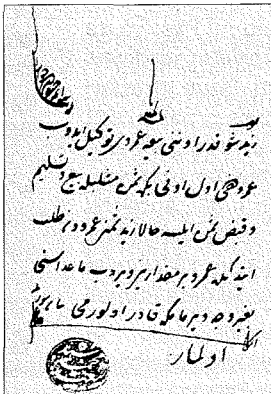 زيد شو قدر اونني بيعه عمروي توكيل ايدوب
عمرو دخي اول اوني بكره ثمن مثليله بيع و تسليم
و قبض ثمن ايلسه حالا زيد ثمني عمرودن طلب
ايتدكده عمرو بر مقدارين ويروب ماعداسني
بغير وجه ويرمامكه قادر اولورمي
اولماز